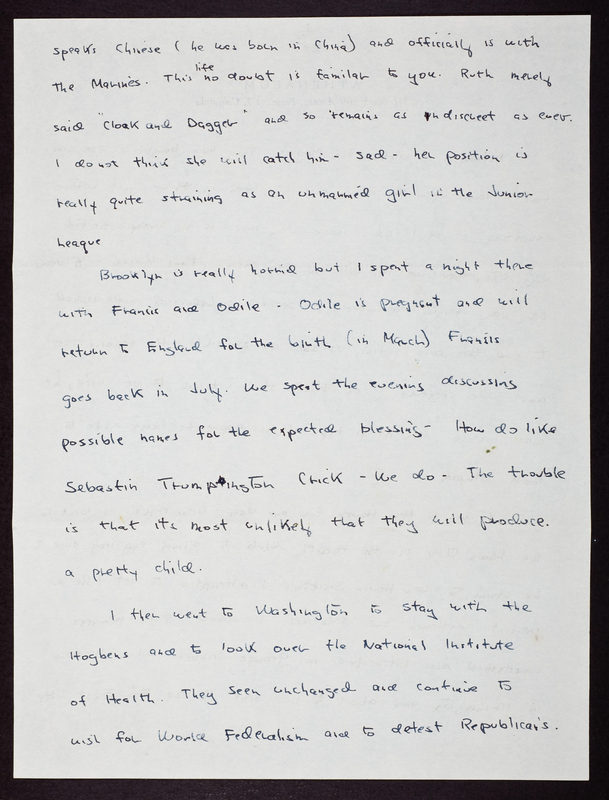 speaks Chinese (he was born in China) and officially is with
the Marines. This life no doubt is familar to you. Ruth merely
said "Cloak and Dagger" and so remains as indiscreet as ever.
I do not think she will catch him - sad - her position is
really quite straining as an unmarried girl in the Junior
League
Brooklyn is really horrid but I spent a night there
with Francis and Odile - Odile is pregnant and will
return to England for the birth (in March) Francis
goes back in July. We spent the evening discussing
possible names for the expected blessing - How do like
Sebastin Trumpington Crick - We do - The trouble
is that its most unlikely that they will produce.
a pretty child.
I then went to Washington to stay with the
Hogbens and to look over the National Institute
of Health. They seem unchanged and continue to
wish for World Federalism and to detest Republicans.